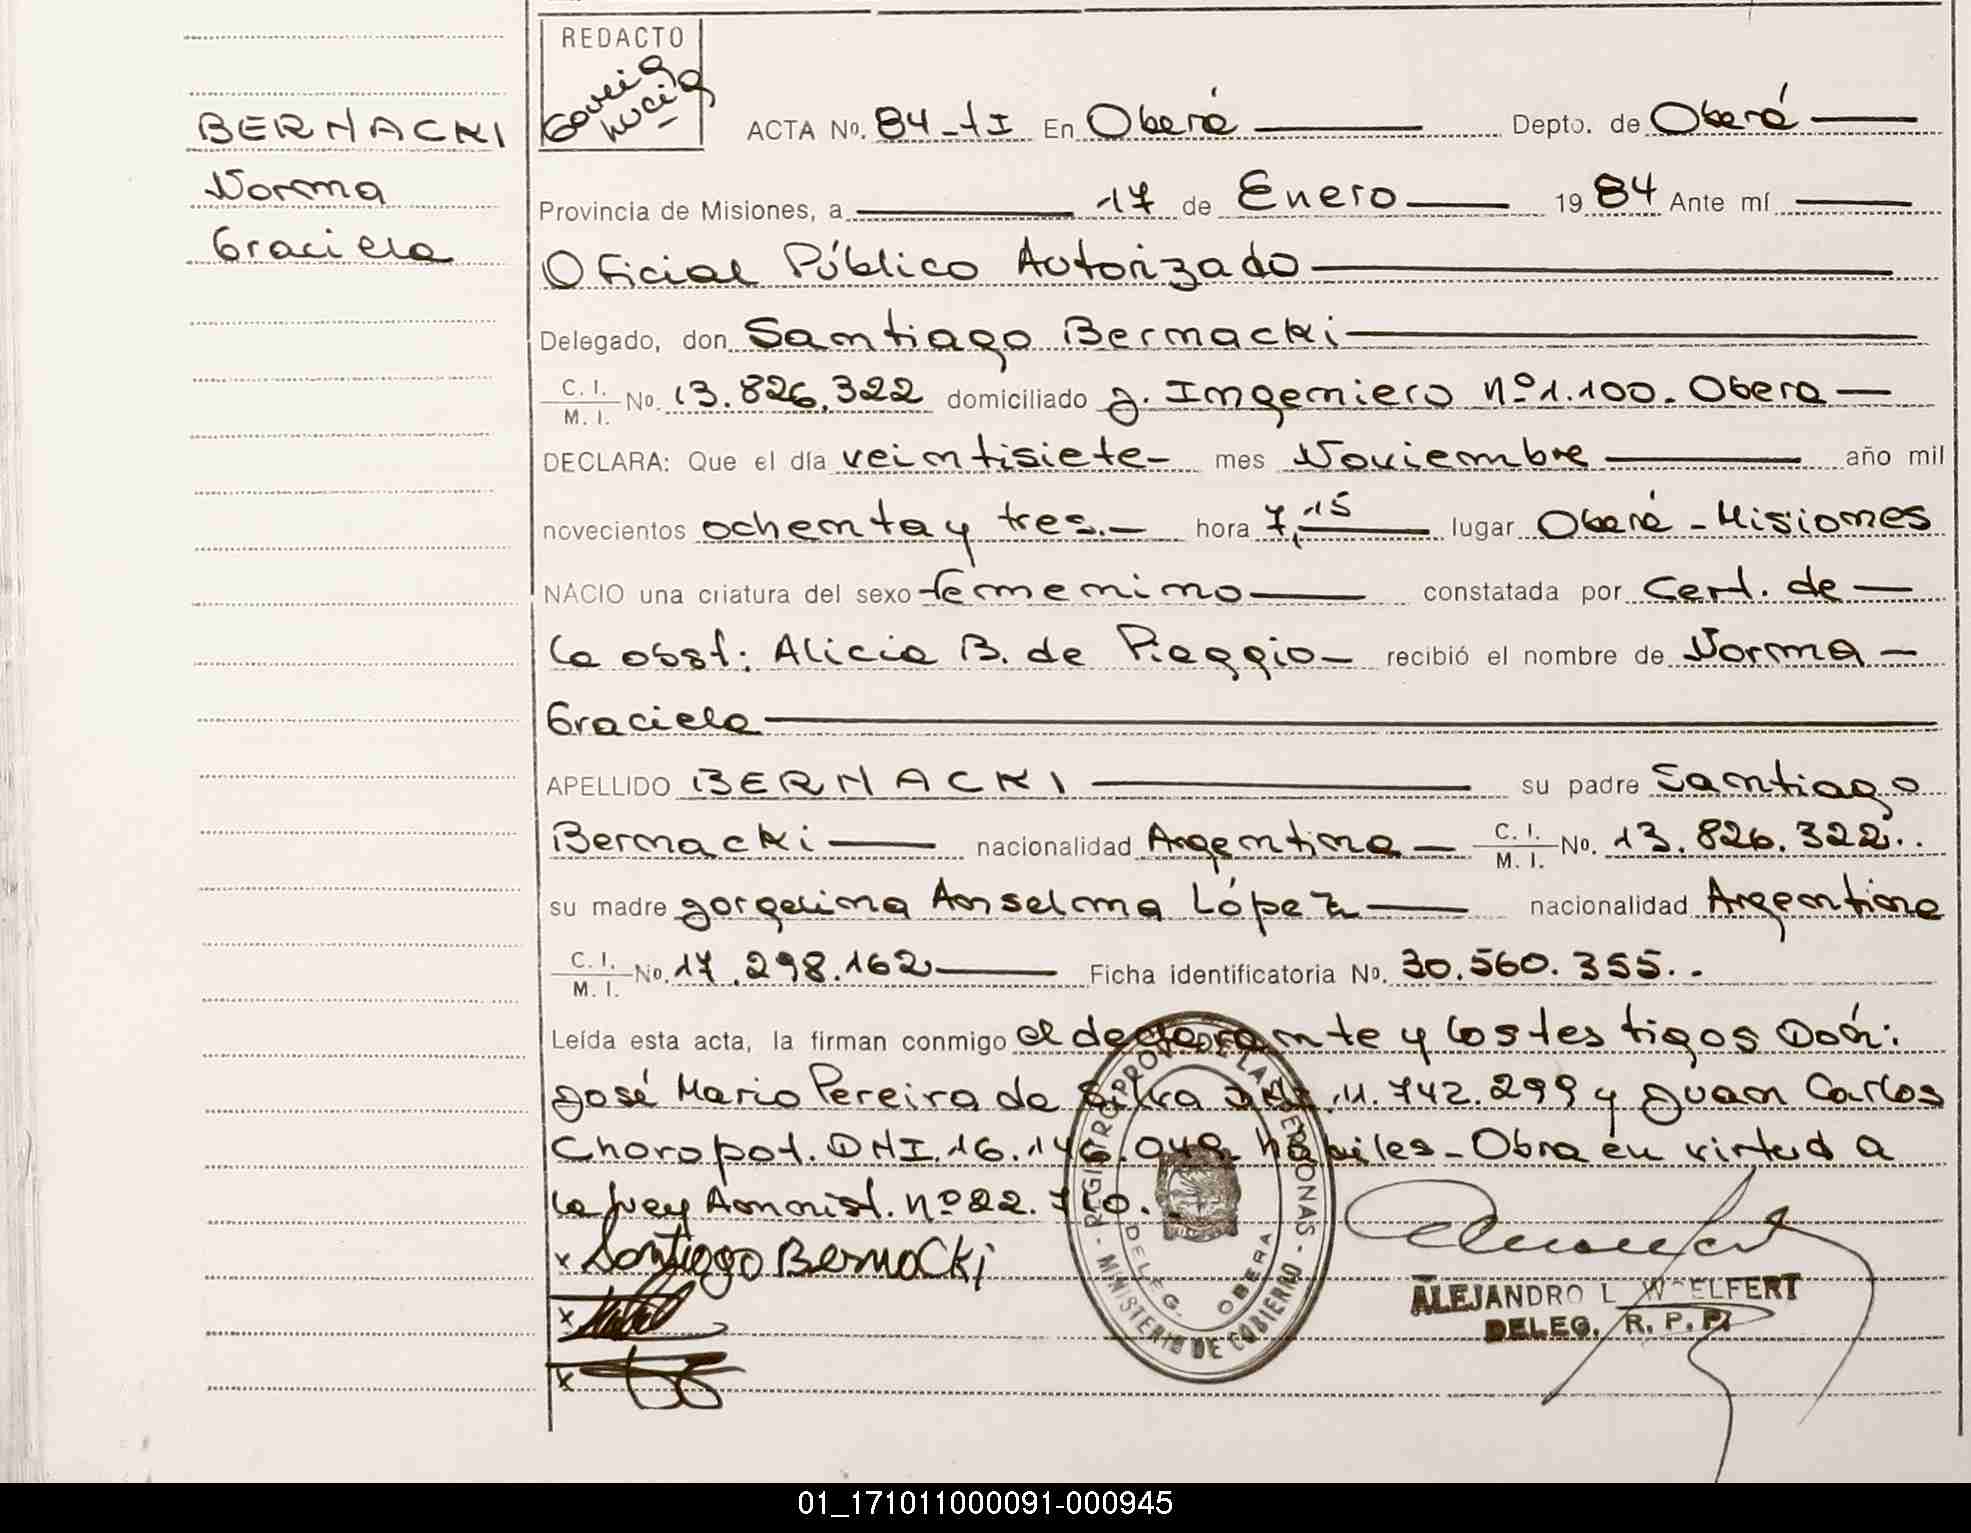 REDACTO
BERNACKI
Norma
Graciela
ACTA No. 84-tI En Oberá Depto. de Oberá
Provincia de Misiones, a 17 de Enero 1984 Ante mí
Oficial Público Autorizado
Delegado, don Santiago Bernacki
C. I. / M. I. No. 13.826.322 domiciliado J. Ingeniero nº 1.100. Obera
DECLARA: Que el día veintisiete mes Noviembre año mil
novecientos ochenta y tres.- hora 7,15 lugar Oberá - Misiones
NACIO una criatura del sexo femenino constatada por Cert. de
la obst: Alicia B. de Piaggio recibió el nombre de Norma
Graciela
APELLIDO BERNACKI su padre Santiago
Bernacki nacionalidad Argentina C. I. / M. I. No. 13.826.322..
su madre Jorgelina Anselma López nacionalidad Argentina
C. I. / M. I. No. 17.298.162 Ficha identificatoria No. 30.560.355..
Leída esta acta, la firman conmigo el declarante y los testigos Don:
José Mario Pereira da Silva DNI.11.742.299 y Juan Carlos
Choropot. DNI.16.146.049 hábiles - Obra en virtud a
la ley Amnist. nº 22.710.
x Santiago Bernacki
x
x
REGISTRO PROV. DE LAS PERSONAS - MINISTERIO DE GOBIERNO -
DELEG. OBERA
ALEJANDRO L. WOELFERT
DELEG. R. P. P.
01_171011000091-000945